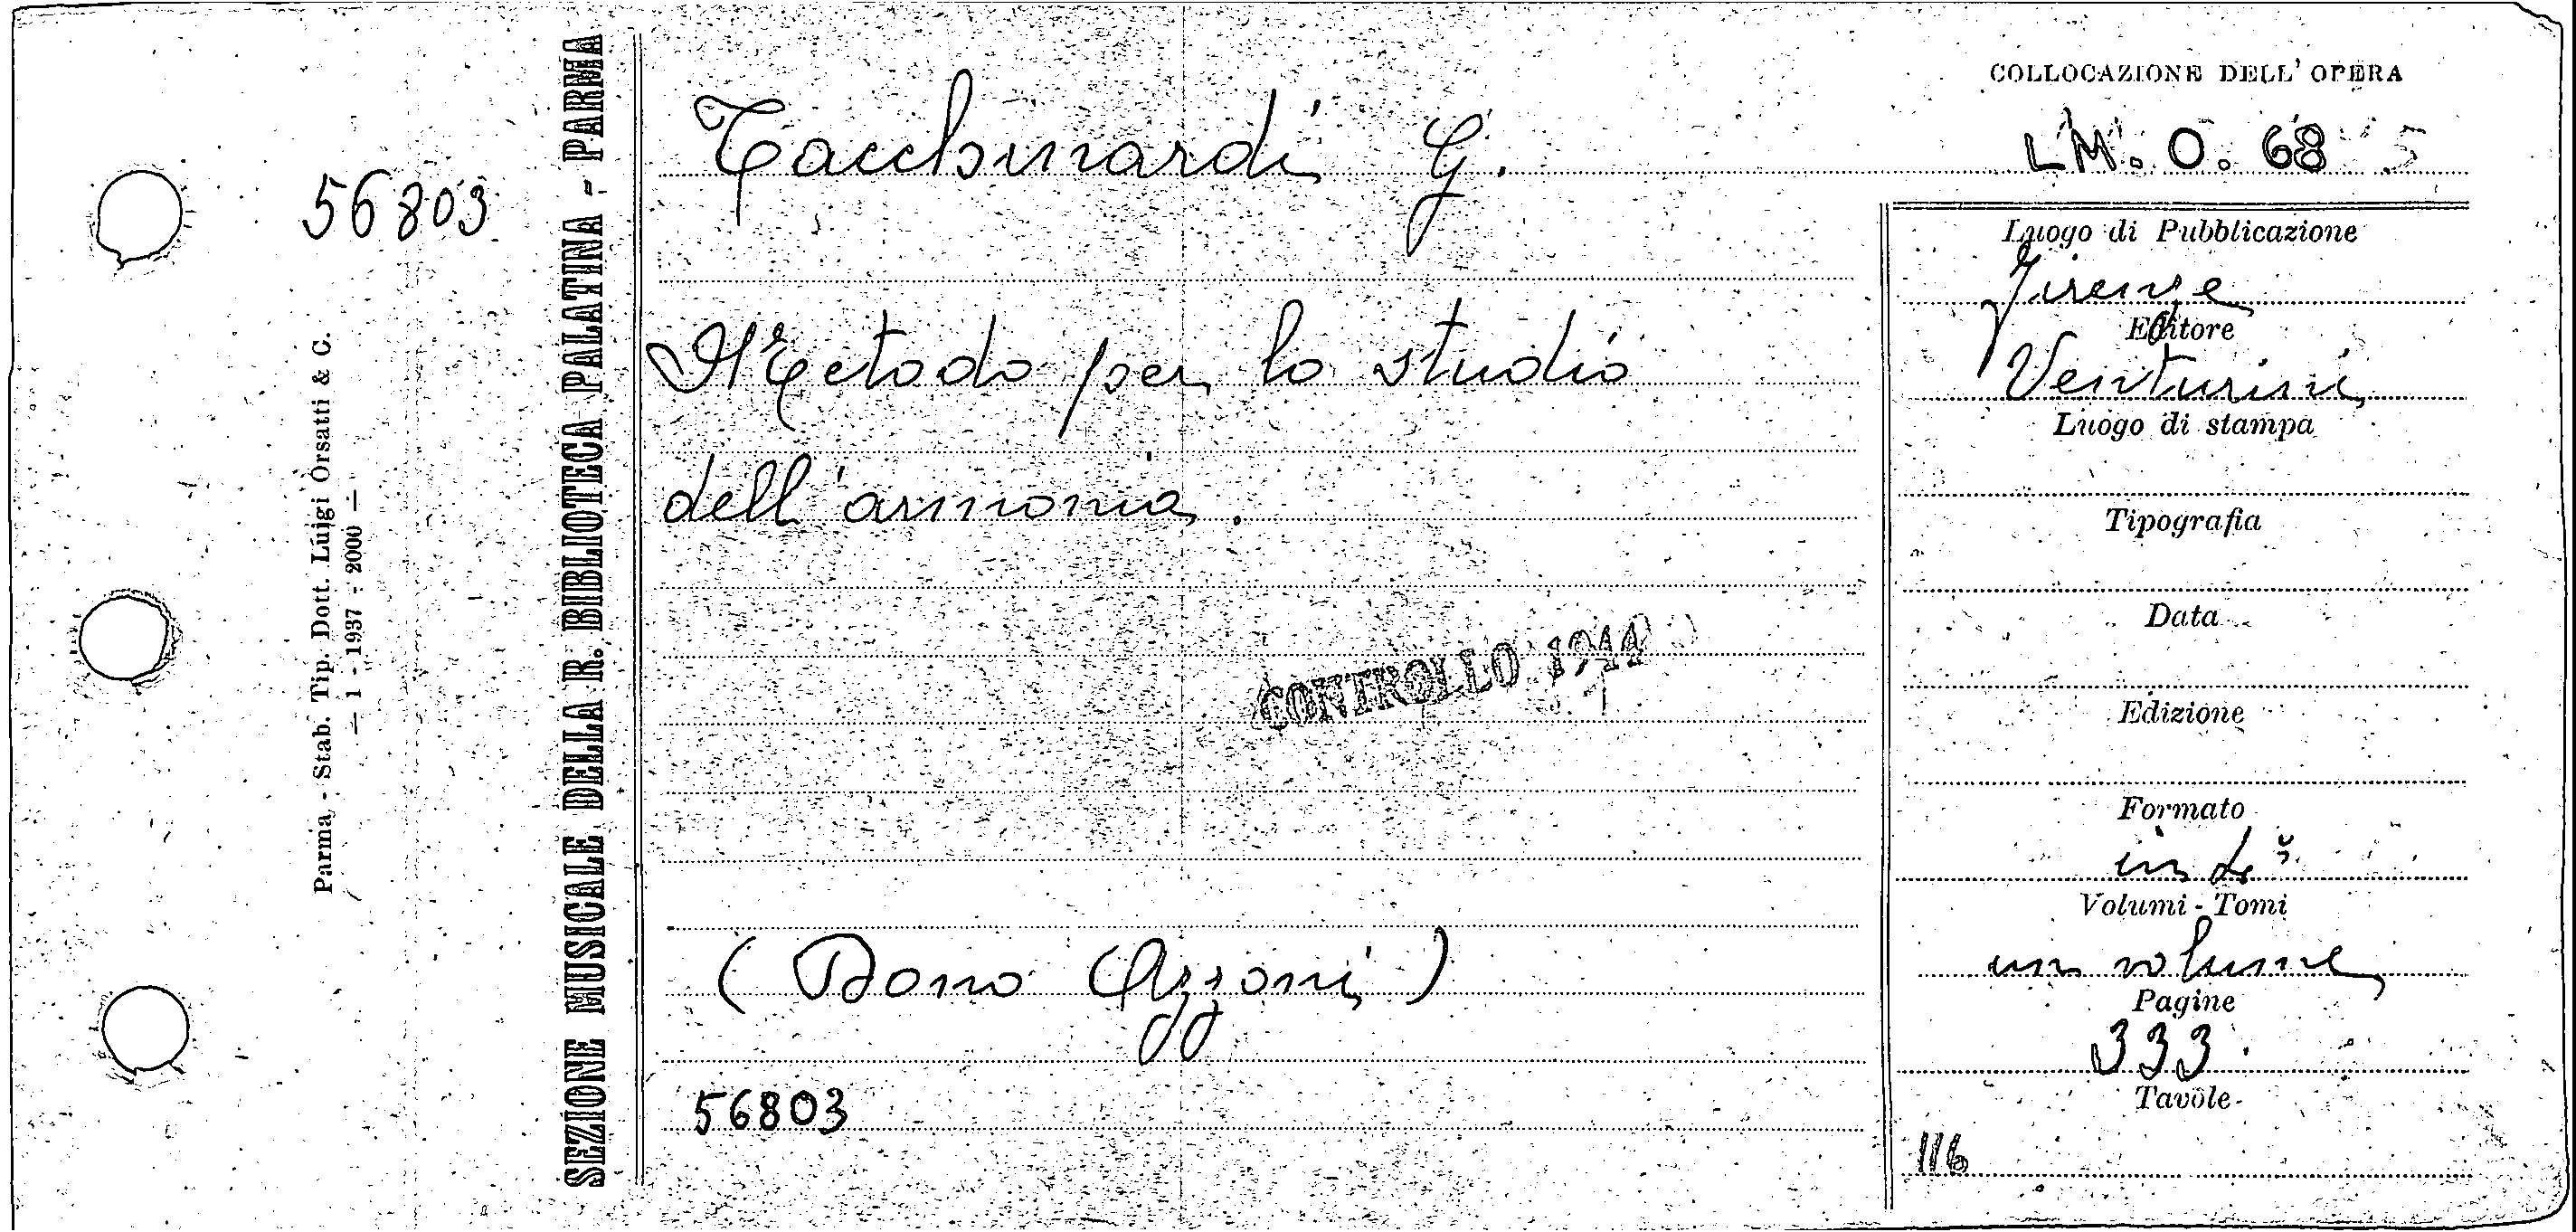 COLLOCAZIONE DELL' OPERA
LM. O. 68
Tacchinardi G.
56803
Metodo per lo studio
dell'armonia.
CONTROLLO 1944
(Dono Azzoni)
56803
Luogo di Pubblicazione
Firenze
Editore
Venturini
Luogo di stampa
Tipografia
Data
Edizione
Formato
in 4°
Volumi - Tomi
un volume
Pagine
333
Tavole
116
SEZIONE MUSICALE DELLA R. BIBLIOTECA PALATINA - PARMA
Parma - Stab. Tip. Dott. Luigi Orsatti & C.
— 1 - 1937 - 2000 —